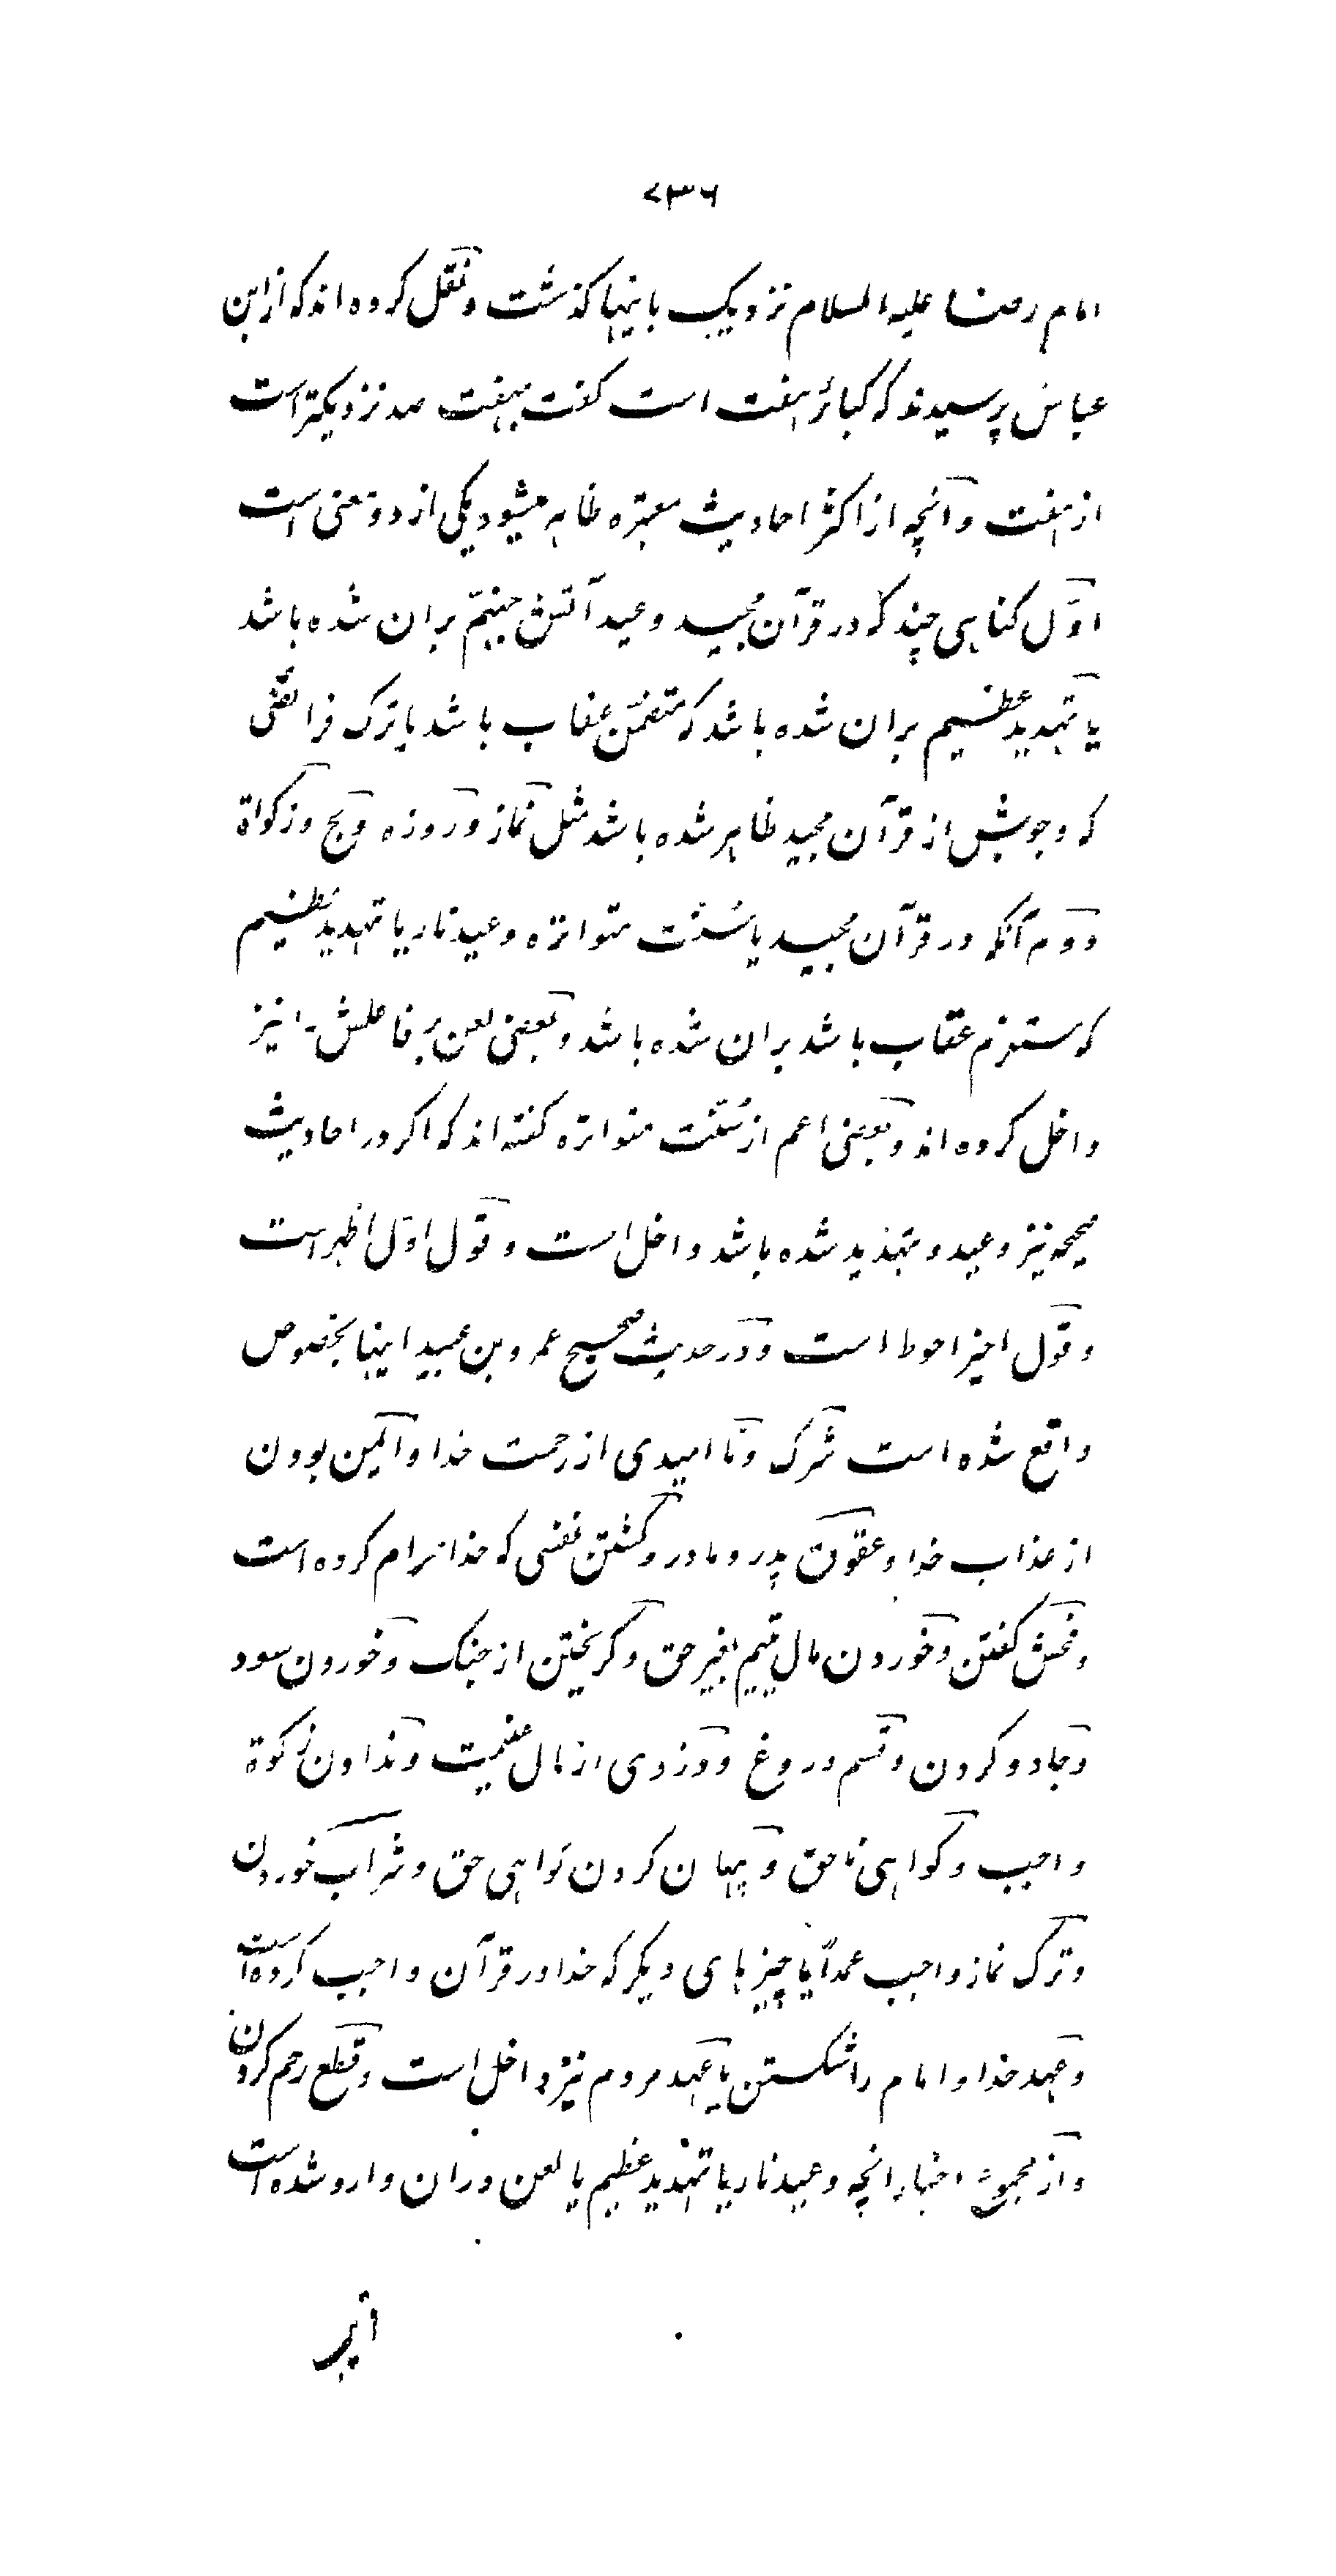 ۷۳۶
امام رضا علیه السلام نزدیک باینها کذشت و نقل کرده اند که از ابن
عباس پرسیدند که کبائر هفت است کفت بهفت صد نزدیکتر است
از هفت و آنچه از اکثر احادیث معتبره ظاهر میشود یکی از دو معنی است
اوّل کناهی چند که در قرآن مجید وعید آتش جهنّم بران شده باشد
یا تهدید عظیم بران شده باشد که متضمّن عقاب باشد یا ترک فرائضی
که وجوبش از قرآن مجید ظاهر شده باشد مثل نماز و روزه و حج و زکواة
دوم آنکه در قرآن مجید یا سُنّت متواتره وعید نار یا تهدید عظیم
که مستلزم عقاب باشد بران شده باشد و بعضی لعن بر فاعلش را نیز
داخل کرده اند و بعضی اعم از سُنّت متواتره کفته اند که اکر در احادیث
صحیحه نیز وعید و تهدید شده باشد داخل است و قول اوّل اظهر است
و قول اخیر احوط است و در حدیث صحیح عمرو بن عبید اینها بخصوص
واقع شده است شرک و نا امیدی از رحمت خدا و ایمن بودن
از عذاب خدا و عقوق پدر و مادر و کشتن نفسی که خدا حرام کرده است
و فحش کفتن و خوردن مال یتیم بغیر حق و کریختن از جنک و خوردن سود
و جادو کردن و قسم دروغ و دزدی از مال غنیمت و ندادن زکوة
واجب و کواهی ناحق و پنهان کردن کواهی حق و شراب خوردن
و ترک نماز واجب عمداً یا چیزهای دیکر که خدا در قرآن واجب کرده است
و عهد خدا و امام را شکستن یا عهد مردم نیز داخل است و قطع رحم کردن
و از مجموع اخبار انچه وعید نار یا تهدید عظیم یا لعن دران وارد شده است